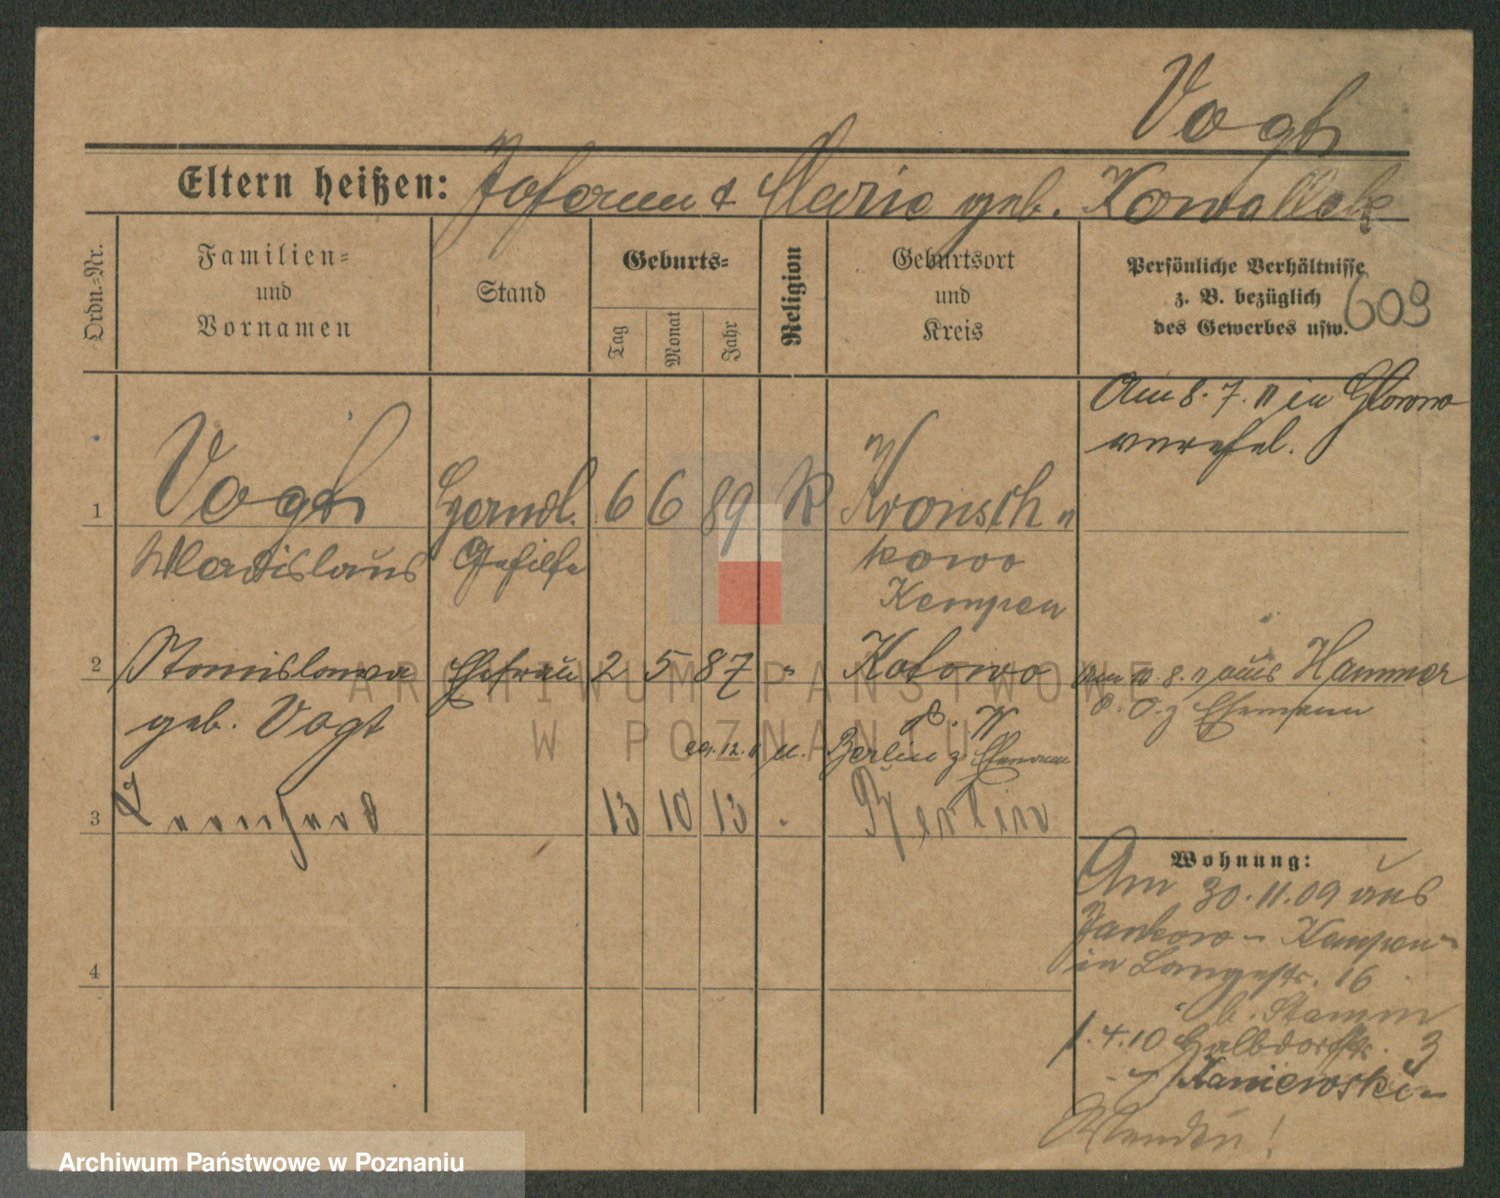 Vogt
Eltern heißen: Johann & Marie geb. Kowallek
Ordn.-Nr.
Familien- und Vornamen
Stand
Geburts-
Tag
Monat
Jahr
Religion
Geburtsort und Kreis
Persönliche Verhältnisse
z. B. bezüglich
des Gewerbes usw.
609
Am 8. 7. 11 in
verehel.
1 Vogt Handl. 6 6 89 K Kronsch-
Wladislaus Gehilfe kowo
Kempen
2 Stanislawa Ehefrau 2 5 87 " Kotowo
geb. Vogt
Am 10. 8. 11 aus Hammer
z. Ehemann
12. 11 Berlin z. Ehemann
3 13 10 13 Berlin
4
Wohnung:
Am 30.11.09 aus
Jankowo - Kempen -
in Langestr. 16
b. Stamm
1.4.10 Halbdorfstr. 3
Kaniewski -
Wenden!
ARCHIWUM PAŃSTWOWE
W POZNANIU
Archiwum Państwowe w Poznaniu